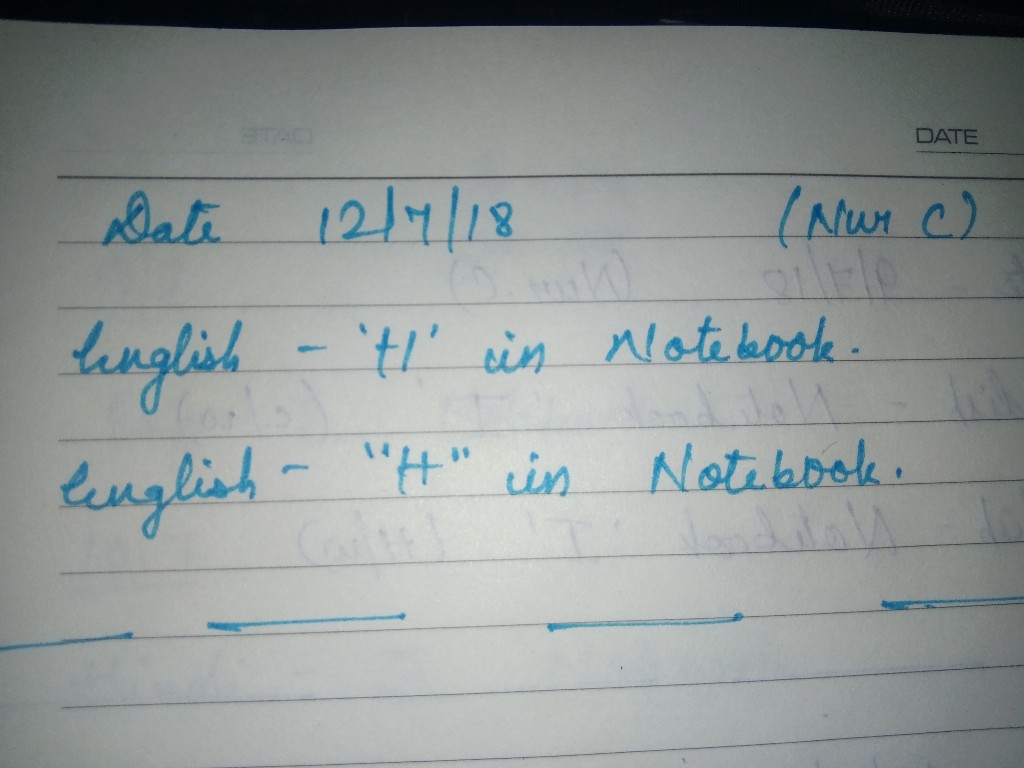 DATE
Date 12/7/18 (Nur C)
English - 'H' in Notebook.
English - "H" in Notebook.